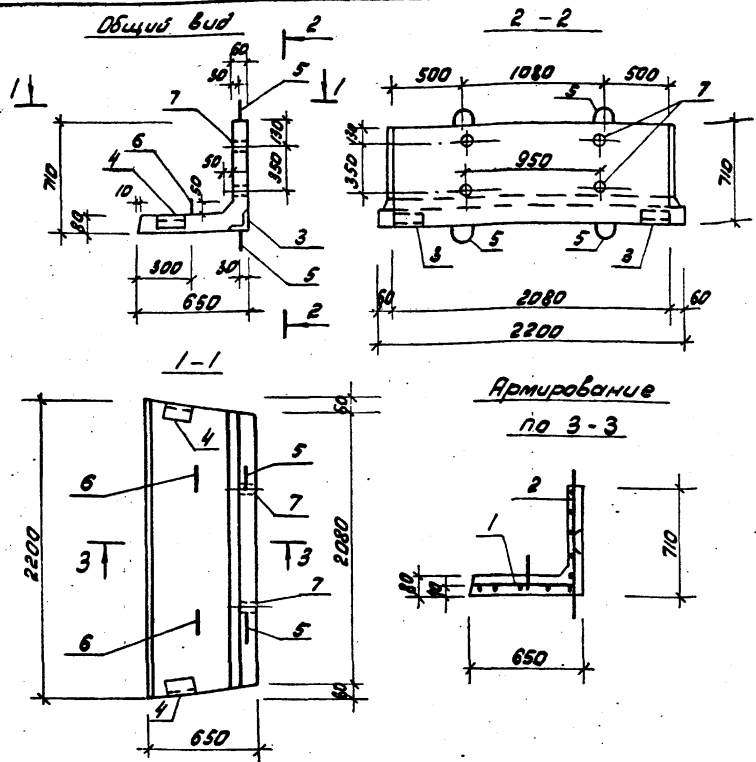 Общий вид
2
60
30
5
1
1
7
130
6
4
50
350
710
10
50
80
3
300
30
5
650
2
2 - 2
500
1080
500
7
5
130
350
950
710
3
5
5
3
60
2080
60
2200
1-1
60
4
5
6
7
2200
3
3
2080
7
6
5
4
60
650
Армирование
по 3-3
2
1
710
80
40
650